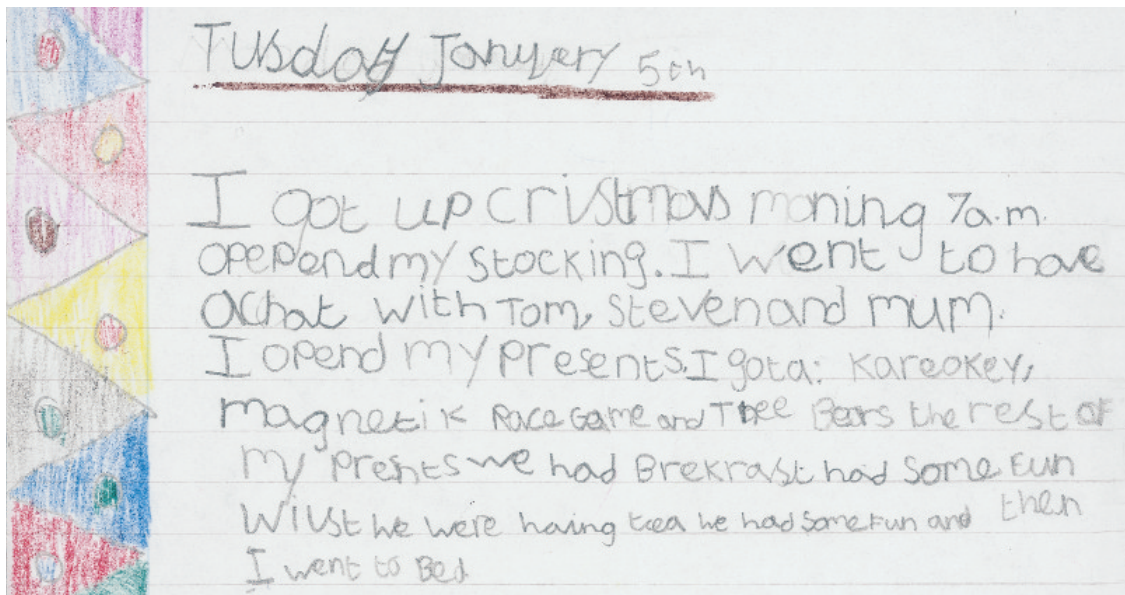 Tusday Janurery 5th
I got up cristmas moning 7a.m.
opepend my stocking. I went to have
a chat with Tom, Steven and mum.
I opend my presents. I got a: kareokey,
magnetik Race Game and Thee Bears the rest of
my preshts we had Brekfast had some fun
wilst we were having tea we had some fun and then
I went to Bed